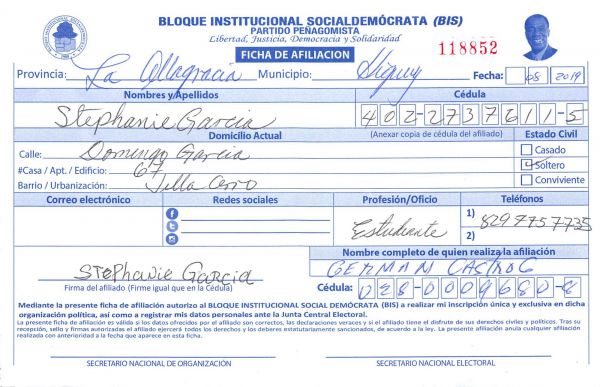 BLOQUE INSTITUCIONAL SOCIALDEMÓCRATA (BIS)
PARTIDO PEÑAGOMISTA
Libertad, Justicia, Democracia y Solidaridad
FICHA DE AFILIACION
118852
Provincia: La Altagracia Municipio: Higuey Fecha: 08 2019
Nombres y/Apellidos Cédula
Stephanie Garcia 402-2737611-5
Domicilio Actual (Anexar copia de cédula del afiliado) Estado Civil
Calle: Domingo Garcia Casado
#Casa / Apt. / Edificio: 67 Soltero
Barrio / Urbanización: Villa Cerro Conviviente
Correo electrónico Redes sociales Profesión/Oficio Teléfonos
Estudiante 1) 8297757735
2)
Nombre completo de quien realiza la afiliación
GERMAN CASTRO G
Stephanie Garcia
Firma del afiliado (Firme igual que en la Cédula) Cédula: 028-0009680-8
Mediante la presente ficha de afiliación autorizo al BLOQUE INSTITUCIONAL SOCIAL DEMÓCRATA (BIS) a realizar mi inscripción única y exclusiva en dicha
organización política, así como a registrar mis datos personales ante la Junta Central Electoral.
La presente ficha de afiliación es válida si los datos ofrecidos por el afiliado son correctos, las declaraciones veraces y si el afiliado tiene el disfrute de sus derechos civiles y políticos. Tras su
recepción, sello y firmas autorizadas el afiliado ejercerá todos los derechos y los deberes estatutariamente sancionados, de acuerdo a la ley. La presente afiliación anula cualquier afiliación
realizada con anterioridad a la fecha que aparece en esta ficha.
SECRETARIO NACIONAL DE ORGANIZACIÓN SECRETARIO NACIONAL ELECTORAL